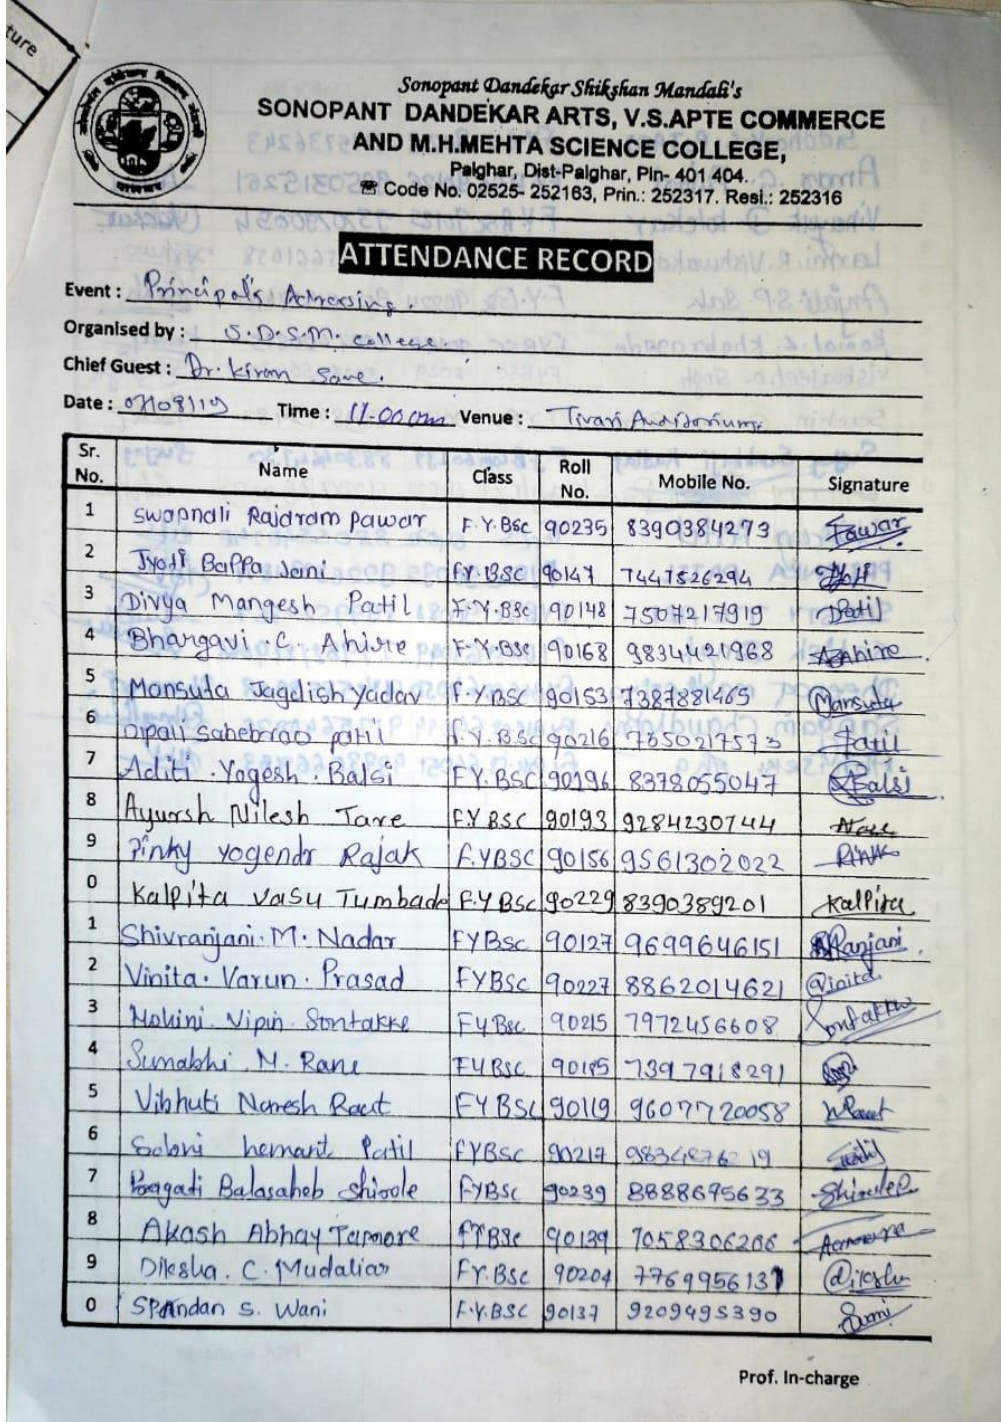 ture
Sonopant Dandekar Shikshan Mandali's
SONOPANT DANDEKAR ARTS, V.S.APTE COMMERCE
AND M.H.MEHTA SCIENCE COLLEGE,
Palghar, Dist-Palghar, Pin- 401 404.
☎ Code No. 02525- 252163, Prin.: 252317. Resi.: 252316
ATTENDANCE RECORD
Event : Principal's Adressing.
Organised by : S.D.S.M. college.
Chief Guest : Dr. Kiran Save.
Date : 07/08/19 Time : 11-00 am Venue : Tivari Auditorium.
Sr. No. Name Class Roll No. Mobile No. Signature
1 Swapnali Rajaram pawar F.Y.BSc 90235 8390384273 Pawar
2 Jyoti Bappa Jani F.Y.BSC 90147 7447526294
3 Divya Mangesh Patil F.Y.BSC 90148 7507217919 DPatil
4 Bhargavi .C. Ahire F.Y.BSC 90168 9834421968 Ahire
5 Mansuta Jagdish yadav F.Y.BSC 90153 7387881465 Mansuta
6 Dipali Saheborao patil F.Y.BSC 90216 7650217573 Patil
7 Aditi .Yogesh . Balsi F.Y.BSC 90196 8378055047 Balsi
8 Ayursh Nilesh Tare F.Y BSC 90193 9284230744
9 Pinky yogendr Rajak F.YBSC 90156 9561302022 Pink
0 Kalpita vasu Tumbade F.Y BSc 90229 8390389201 Kalpita
1 Shivranjani. M. Nadar FYBSc 90127 9699646151 Ranjani
2 Vinita. Varun. Prasad FYBSc 90227 8862014621 Vinita
3 Mohini. Vipin. Sontakke FYBsc 90215 7972456608 Sontakke
4 Surabhi .M. Rane FYBSC 90185 7397918291
5 Vibhuti Naresh Raut FYBSc 90119 9607720058 VRaut
6 Saloni hemant Patil FYBSC 90217 Patil
7 Pragati Balasaheb Shirole FYBSC 90239 8888695633 Shirole
8 Akash Abhay Tamore FYBSc 90139 7058306206
9 Diksha. C. Mudaliar FY.BSC 90204 7769956137 Diksha
0 Spandan S. Wani F.Y.BSC 90137 9209495390
Prof. In-charge